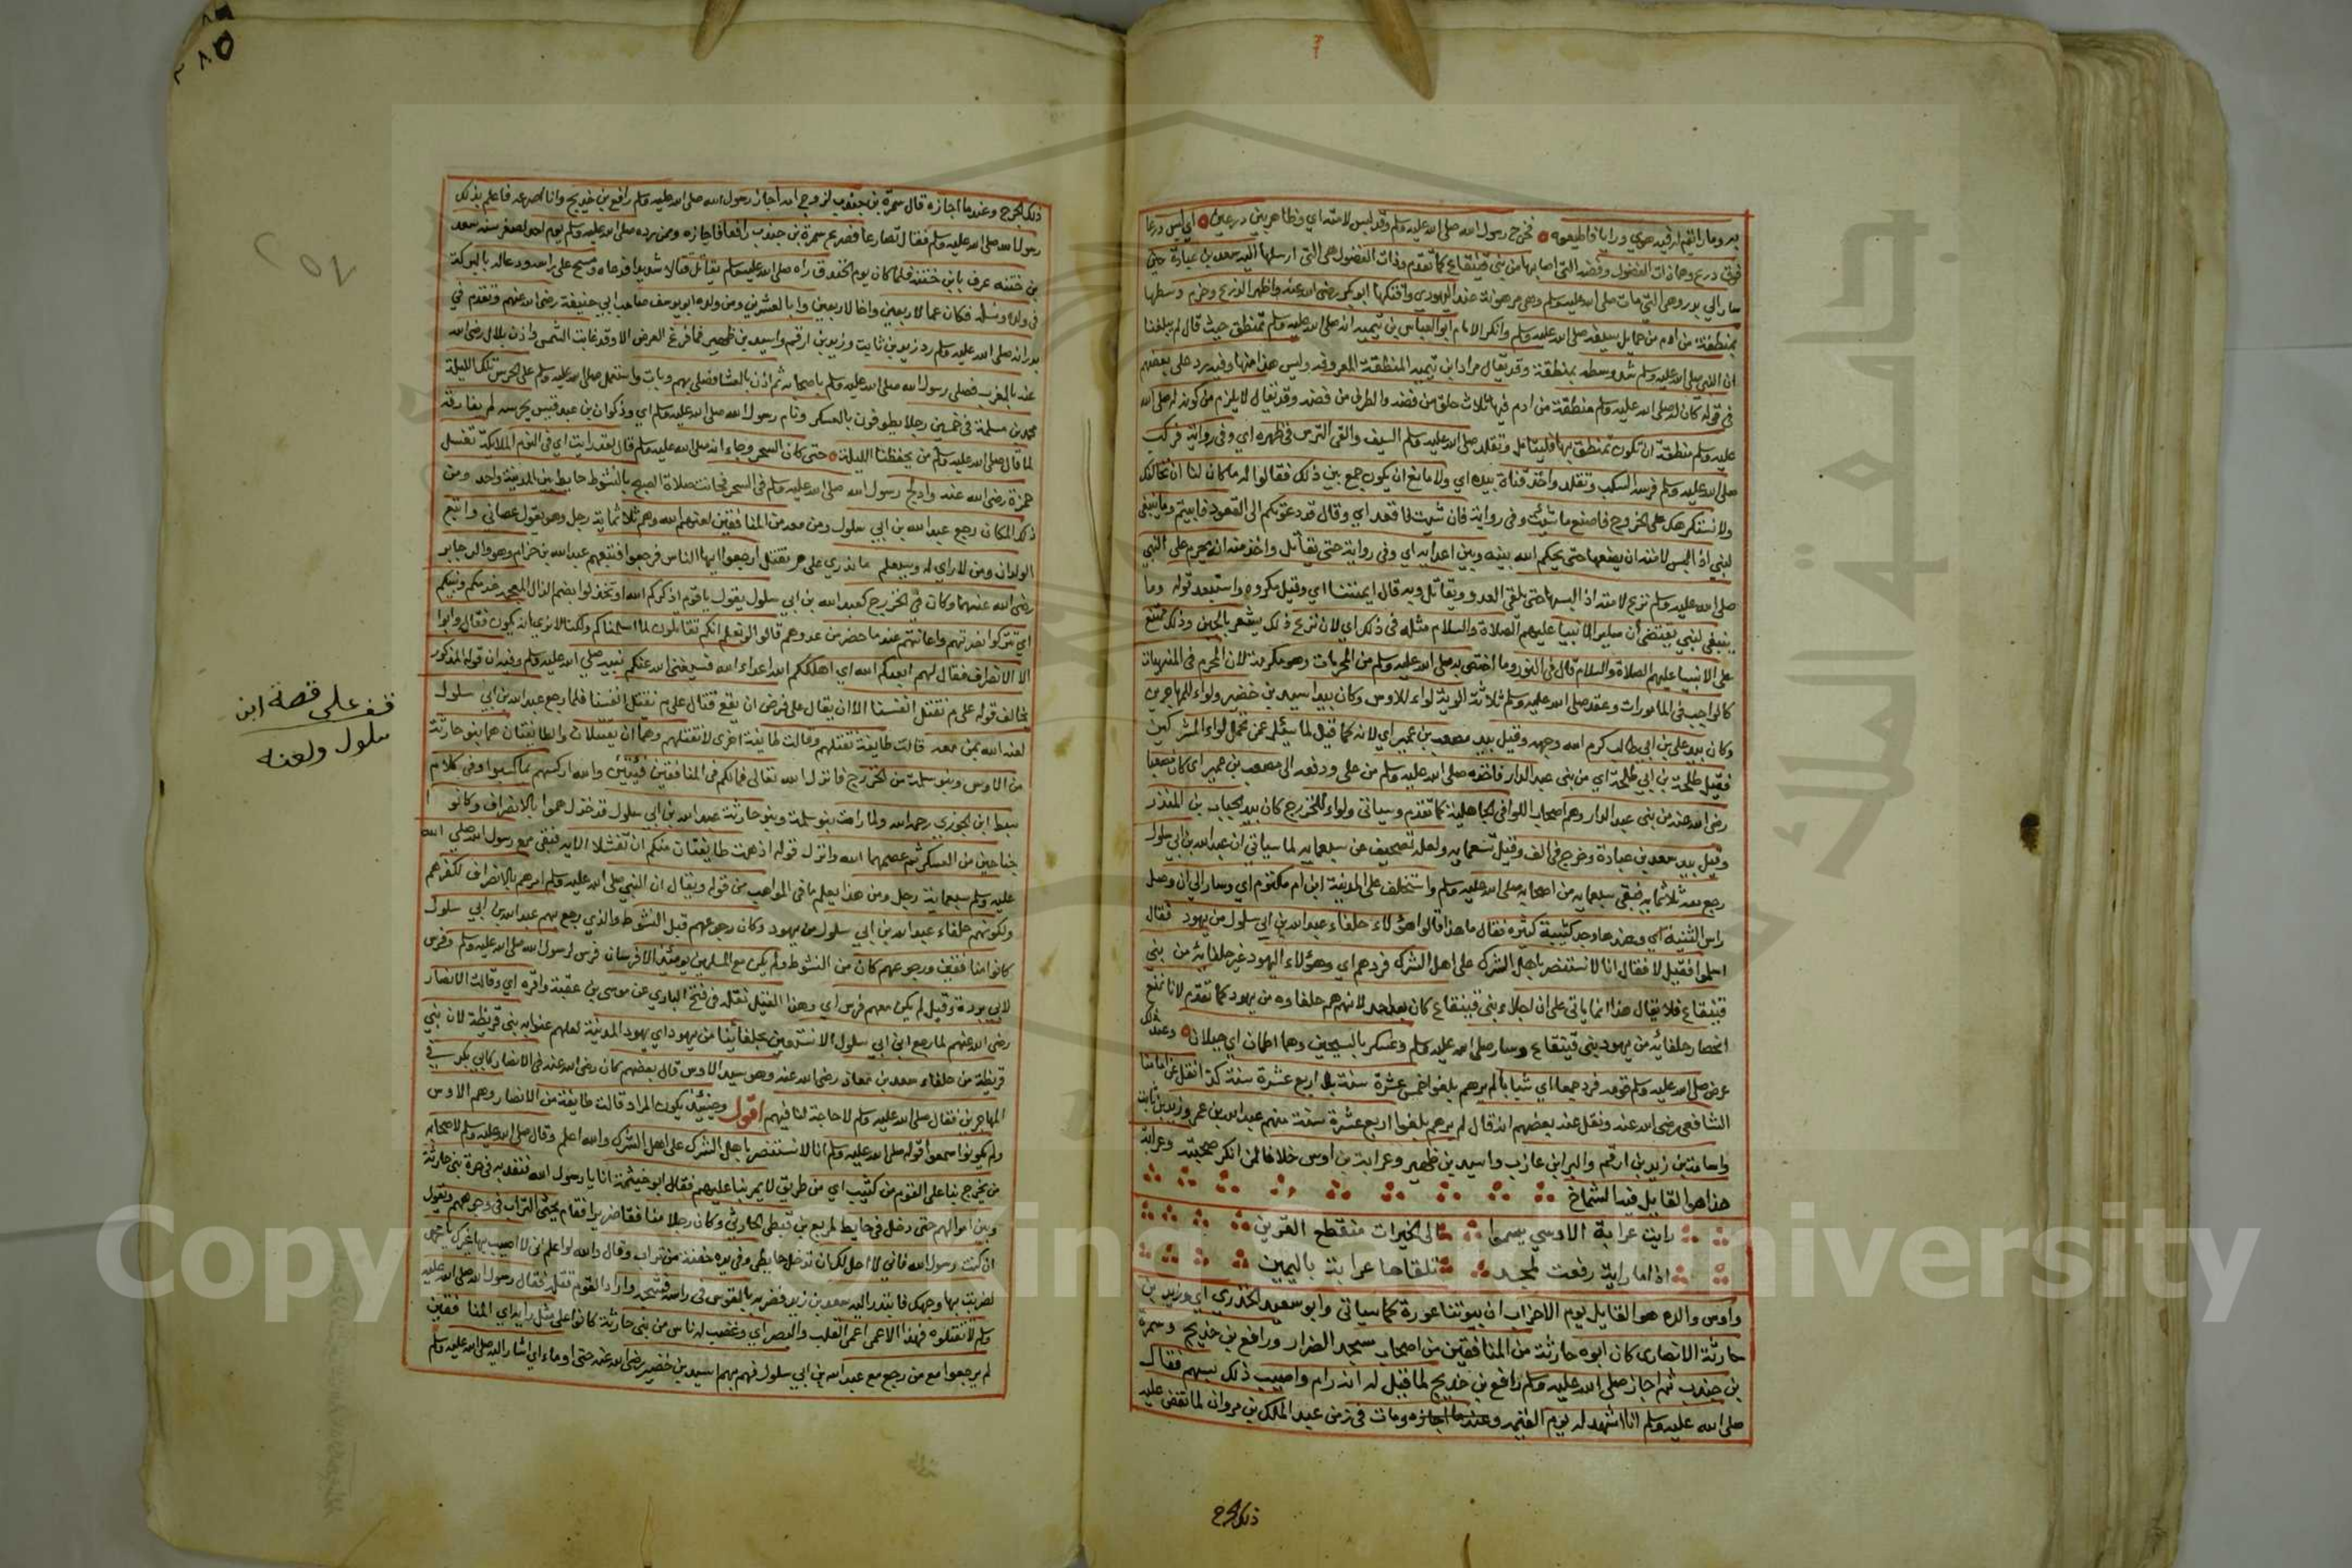 به وما رايتم له فيه هوي ورايا فاطيعوه فخرج رسول الله صلى الله عليه وسلم وقد لبس لامته اي وظاهر بين درعين اي لبس درعا
فوق درع وهما ذات الفضول وفضة التي اصابها من بني قينقاع كما تقدم وذات الفضول هي التي ارسلها اليه سعد بن عبادة حين
سار الي بدر وهي التي مات صلى الله عليه وسلم وهي مرهونة عند اليهودي وافتكها ابو بكر رضي الله عنه واظهر الدرع وحزم وسطها
بمنطقة من ادم من حمايل سيفه صلى الله عليه وسلم وانكر الامام ابو العباس بن تيمية انه صلى الله عليه وسلم تمنطق حيث قال لم يبلغنا
ان النبي صلى الله عليه وسلم شد وسطه بمنطقة وقد يقال مراد ابن تيمية المنطقة المعروفة وليس هذا منها وفيه رد على بعضهم
في قوله كان له صلى الله عليه وسلم منطقة من ادم فيها ثلاث حلق من فضة والطرف من فضة وقد يقال لا يلزم من كونه له صلى الله
عليه وسلم منطقة ان يكون تمنطق بها فليتامل وتقلد صلى الله عليه وسلم السيف والقى الترس في ظهره اي وفي رواية فركب
صلى الله عليه وسلم فرسه السكب وتقلد واخذ قناة بيده اي ولا مانع ان يكون جمع بين ذلك فقالوا له ما كان لنا ان نخالفك
ولا نستكرهك على الخروج فاصنع ما شئت وفي رواية فان شئت فاقعد اي وقال قد دعوتكم الى القعود فابيتم وما ينبغي
لنبي اذا لبس لامته ان يضعها حتى يحكم الله بينه وبين اعدايه اي وفي رواية حتى يقاتل واخذ منه انه يحرم على النبي
صلى الله عليه وسلم نزع لامته اذا لبسها حتى يلقى العدو ويقاتل وبه قال ايمتنا اي وقيل مكروه واستبعد قوله وما
ينبغي لنبي يقتضي ان ساير الانبيا عليهم الصلاة والسلام مثله في ذلك اي لان نزع ذلك يشعر بالجبن وذلك ممتنع
على الانبيا عليهم الصلاة والسلام قال في النور وما اختص به صلى الله عليه وسلم من المحرمات وهو مكرمة لان المحرم في المنهيات
كالواجب في المامورات وعقد صلى الله عليه وسلم ثلاثة الوية لواء للاوس وكان بيد اسيد بن حضير ولواء للمهاجرين
وكان بيد علي بن ابي طالب كرم الله وجهه وقيل بيد مصعب بن عمير اي لانه كما قيل لما سئل عن يحمل لواء المشركين
فقيل طلحة بن ابي طلحة اي من بني عبد الدار فاخذه صلى الله عليه وسلم من علي ودفعه الى مصعب بن عمير اي كان مصعبا
رضي الله عنه من بني عبد الدار وهم اصحاب اللوا في الجاهلية كما تقدم وسياتي ولواء للخزرج كان بيد الحباب بن المنذر
وقيل بيد سعد بن عبادة وخرج في الف وقيل تسعمايه ولعله تصحيف عن سبعمايه لما سياتي ان عبد الله بن ابي سلول
رجع معه ثلاثمايه فبقى سبعمايه من اصحابه صلى الله عليه وسلم واستخلف على المدينة ابن ام مكتوم اي وسار الى ان وصل
راس الثنية اي وعندها وجد كتيبة كثيرة فقال ما هذا قالوا هؤلاء حلفاء عبد الله بن ابي سلول من يهود فقال
اسلموا فقيل لا فقال انا لا نستنصر باهل الشرك على اهل الشرك فردهم اي وهؤلاء اليهود غير حلفائه من بني
قينقاع فلا يقال هذا انما ياتي على ان اجلاء بني قينقاع كان بعد احد لانهم هم حلفاوه من يهود كما تقدم لانا نمنع
انحصار حلفائه من يهود بني قينقاع وسار صلى الله عليه وسلم وعسكر بالشيخين وهما اطمان اي جبلان وعند ذلك
عرض صلى الله عليه وسلم قومه فرد جمعا اي شبابا لم يرهم بلغوا خمس عشرة سنة بل اربع عشرة سنة كذا نقل عن امامنا
الشافعي رضي الله عنه ونقل عنه بعضهم انه قال لم يرهم بلغوا اربع عشرة سنة منهم عبد الله بن عمر وزيد بن ثابت
واسامة بن زيد بن ارقم والبرا بن عازب واسيد بن ظهير وعرابة بن اوس خلافا لمن انكر صحبته وعرابة
هذا هو القايل فيه الشماخ
رايت عرابة الاوسي يسموا الى الخيرات منقطع القرين
اذا ما راية رفعت لمجد تلقاها عرابة باليمين
واوس والده هو القايل يوم الاحزاب ان بيوتنا عورة كما سياتي وابو سعيد الخدري اي وزيد بن
حارثة الانصاري كان ابوه حارثة من المنافقين من اصحاب مسجد الضرار ورافع بن خديج وسمرة
بن جندب ثم اجاز صلى الله عليه وسلم رافع بن خديج لما قيل له انه رام واصيب ذلك بسهم فقال
صلى الله عليه وسلم انا اشهد له يوم القيمة وعندما اجازه ومات في زمن عبد الملك بن مروان لما نقض عليه
ذلك الجرح
ذلك الجرح وعندما اجازه قال سمرة بن جندب لزوج امه اجاز رسول الله صلى الله عليه وسلم رافع بن خديج وانا اصرعه فاعلم بذلك
رسول الله صلى الله عليه وسلم فقال تصارعا فصرع سمرة بن جندب رافعا فاجازه وممن رده صلى الله عليه وسلم يوم احد لصغر سنه سعد
بن حبتة عرف بابن حبتة فلما كان يوم الخندق راه صلى الله عليه وسلم يقاتل قتالا شديدا فدعاه ومسح على راسه ودعا له بالبركة
في ولده ونسله فكان عما لاربعين واخا لاربعين وابا لعشرين ومن ولده ابو يوسف صاحب ابي حنيفة رضي الله عنهم وتقدم في
بدر انه صلى الله عليه وسلم رد زيد بن ثابت وزيد بن ارقم واسيد بن ظهير فما فرغ العرض الا وقد غابت الشمس واذن بلال رضي الله
عنه بالمغرب فصلى رسول الله صلى الله عليه وسلم باصحابه ثم اذن بالعشا فصلى بهم وبات واستعمل صلى الله عليه وسلم على الحرس تلك الليلة
محمد بن مسلمة في خمسين رجلا يطوفون بالعسكر ونام رسول الله صلى الله عليه وسلم اي وذكوان بن عبد قيس يحرسه لم يفارقه
لما قال صلى الله عليه وسلم من يحفظنا الليلة حتى كان السحر وجاء انه صلى الله عليه وسلم قال لقد رايت اي في النوم الملائكة تغسل
حمزة رضي الله عنه وادلج رسول الله صلى الله عليه وسلم في السحر فحانت صلاة الصبح بالشوط حايط بين المدينة واحد ومن
ذلك المكان رجع عبد الله بن ابي سلول ومن معه من المنافقين لعنهم الله وهم ثلاثماية رجل وهو يقول عصاني واتبع
الولدان ومن لا راي له وسيعلم ما ندري على م نقتل ارجعوا ايها الناس فرجعوا فتبعهم عبد الله بن حزام وهو والد جابر
رضي الله عنهما وكان في الخزرج كعبد الله بن ابي سلول يقول يا قوم اذكركم الله ان تخذلوا بضم الذال المعجمة قومكم ونبيكم
اي تتركوا نصرتهم واعانتهم عندما حضر من عدوهم قالوا لو نعلم انكم تقاتلون لما اسلمناكم ولكنا لا نرى انه يكون قتال وابوا
الا الانصراف فقال لهم ابعدكم الله اي اهلككم الله اعداء الله فسيغني الله عنكم نبيه صلى الله عليه وسلم وفيه ان قوله المذكور
يخالف قوله على م نقتل انفسنا الا ان يقال على فرض ان يقع قتال على م نقتل انفسنا فلما رجع عبد الله بن ابي سلول
لعنه الله بمن معه قالت طايفة نقتلهم وقالت طايفة اخرى لا نقتلهم وهما ان يقتتلا والطايفتان هما بنو حارثة
من الاوس وبنو سلمة من الخزرج فانزل الله تعالى فما لكم في المنافقين فئتين والله اركسهم بما كسبوا وفي كلام
سبط ابن الجوزي رحمه الله ولما رات بنو سلمة وبنو حارثة عبد الله بن ابي سلول قد خذل هموا بالانصراف وكانوا
جناحين من العسكر ثم عصمهما الله وانزل قوله اذ همت طايفتان منكم ان تفشلا الاية فبقى مع رسول الله صلى الله
عليه وسلم سبعماية رجل ومن هذا يعلم ما في المواهب من قوله ويقال ان النبي صلى الله عليه وسلم امرهم بالانصراف لكفرهم
ولكونهم حلفاء عبد الله بن ابي سلول من يهود وكان رجوعهم قبل الشوط والذي رجع بهم عبد الله بن ابي سلول
كانوا منافقين ورجوعهم كان من الشوط ولم يكن مع المسلمين يومئذ الا فرسان فرس لرسول الله صلى الله عليه وسلم وفرس
لابي بردة وقيل لم يكن معهم فرس اي وهذا القيل نقله في فتح الباري عن موسى بن عقبة واقره اي وقالت الانصار
رضي الله عنهم لما رجع ابن ابي سلول الا نستعين بحلفائنا من يهود اي يهود المدينة لعلهم عنوا به بني قريظة لان بني
قريظة من حلفاء سعد بن معاذ رضي الله عنه وهو سيد الاوس قال بعضهم كان رضي الله عنه في الانصار كابي بكر في
المهاجرين فقال صلى الله عليه وسلم لا حاجة لنا فيهم اقول وحينئذ يكون المراد قالت طايفة من الانصار وهم الاوس
ولم يكونوا سمعوا قوله صلى الله عليه وسلم انا لا نستنصر باهل الشرك على اهل الشرك والله اعلم وقال صلى الله عليه وسلم لاصحابه
من يخرج بنا على القوم من كثيب اي من طريق لا يمر بنا عليهم فقال ابو خيثمة انا يا رسول الله فنفذ به في حرة بني حارثة
وبين اموالهم حتى دخل في حايط لمربع بن قيظي الحارثي وكان رجلا منافقا ضريرا فقام يحثي التراب في وجوههم ويقول
ان كنت رسول الله فاني لا احل لك ان تدخل حايطي وفي يده حفنة من تراب وقال والله لو اعلم اني لا اصيب بها غيرك يا محمد
لضربت بها وجهك فابتدر اليه سعد بن زيد فضربه بالقوس في راسه فشجه واراد القوم قتله فقال رسول الله صلى الله عليه
وسلم لا تقتلوه فهذا الاعمى اعمى القلب والبصر اي وغضب له ناس من بني حارثة كانوا على مثل رايه اي المنافقين
لم يرجعوا مع من رجع مع عبد الله بن ابي سلول فهم بهم اسيد بن حضير رضي الله عنه حتى اوماء اي اشار اليه صلى الله عليه وسلم
قف على قصة ابن
سلول ولعنه
Copyright © King Saud University
جامعة الملك سعود